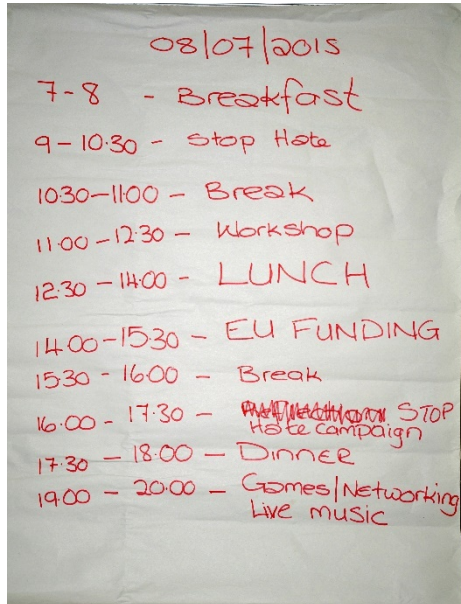 08/07/2015
7-8 - Breakfast
9-10:30 - Stop Hate
10:30-11:00 - Break
11:00-12:30 - Workshop
12:30-14:00 - LUNCH
14:00-15:30 - EU FUNDING
15:30-16:00 - Break
16:00- 17:30 - STOP
Hate campaign
17:30 - 18:00 - Dinner
19:00 - 20:00 - Games/Networking
Live music